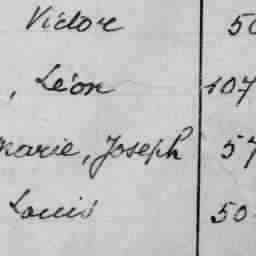 Victor 50
, Léon 107
Marie, Joseph 57
Louis 50